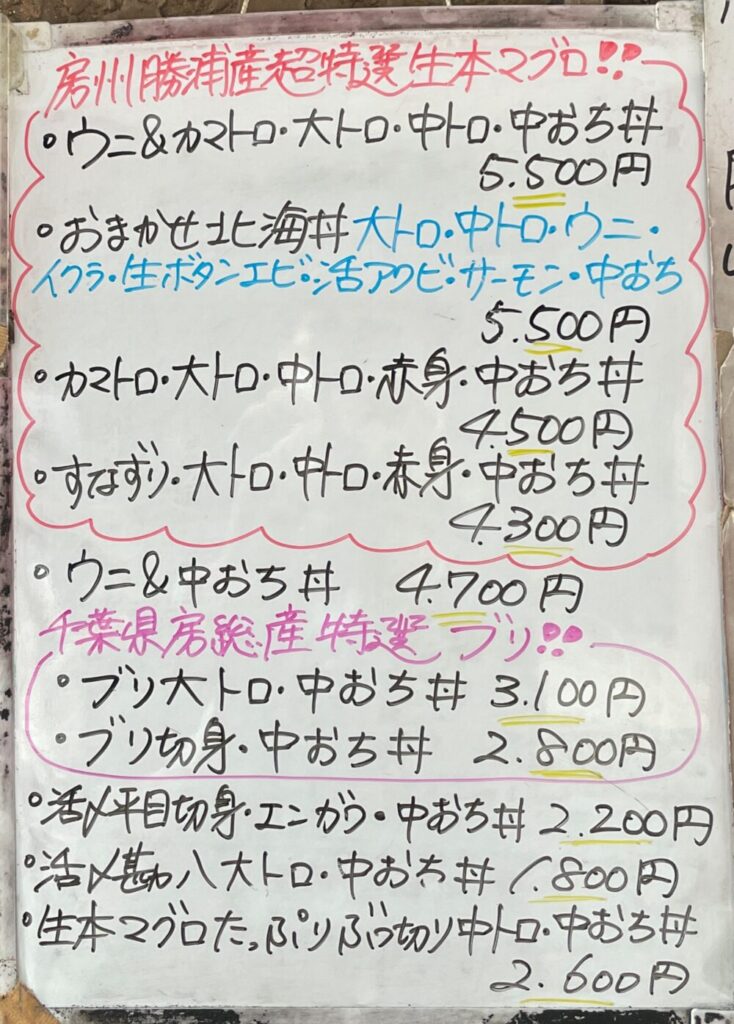 房州勝浦産超特選生本マグロ!!
・ウニ&カマトロ・大トロ・中トロ・中おち丼
5.500円
・おまかせ北海丼大トロ・中トロ・ウニ・
イクラ・生ボタンエビ・活アワビ・サーモン・中おち
5.500円
・カマトロ・大トロ・中トロ・赤身・中おち丼
4.500円
・すなずり・大トロ・中トロ・赤身・中おち丼
4.300円
・ウニ&中おち丼 4.700円
千葉県房総産特選 ブリ!!
・ブリ大トロ・中おち丼 3.100円
・ブリ切身・中おち丼 2.800円
・活〆平目切身・エンガワ・中おち丼 2.200円
・活〆勘八大トロ・中おち丼 1.800円
・生本マグロたっぷりぶつ切り中トロ・中おち丼
2.600円